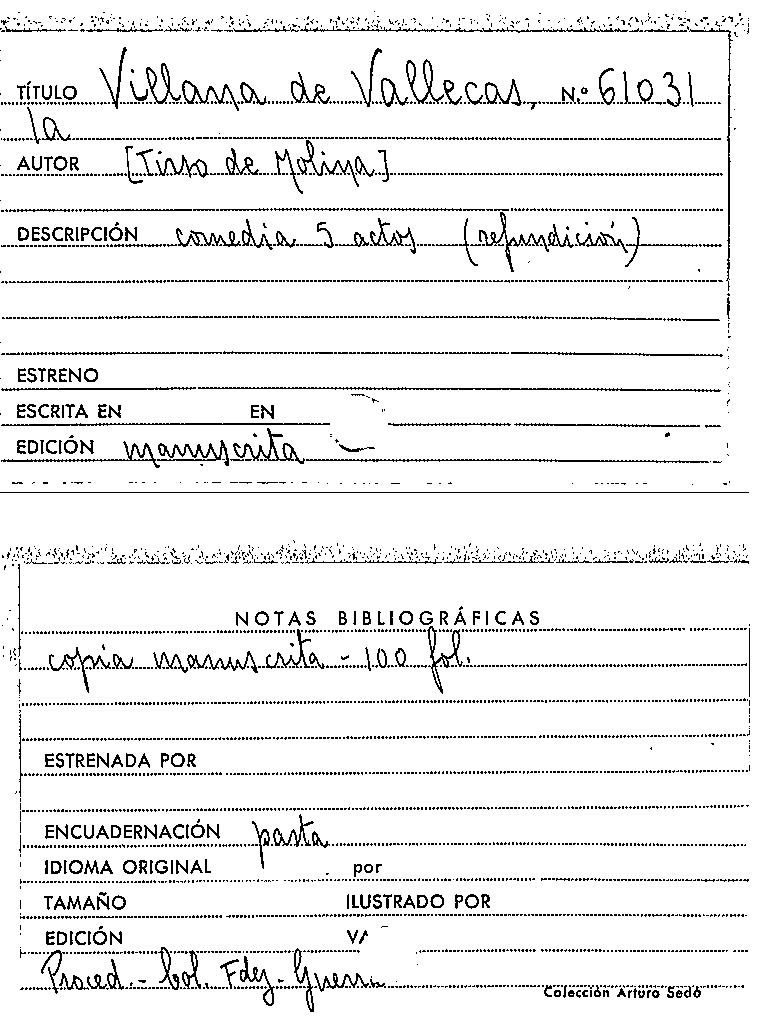 TÍTULO Villana de Vallecas, N.º 61031
la
AUTOR [Tirso de Molina]
DESCRIPCIÓN comedia 5 actos (refundición)
ESTRENO
ESCRITA EN EN
EDICIÓN manuscrita
NOTAS BIBLIOGRÁFICAS
copia manuscrita - 100 fol.
ESTRENADA POR
ENCUADERNACIÓN pasta
IDIOMA ORIGINAL por
TAMAÑO ILUSTRADO POR
EDICIÓN
Proced. - Col. Fdez - Guerra
Colección Arturo Sedó